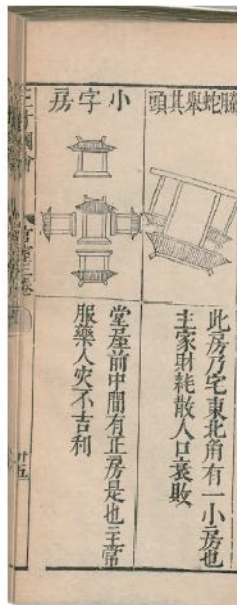 螣蛇舉其頭
此房乃宅東北角有一小房也
主家財耗散人口衰敗
小字房
堂屋前中間有正房是也主常
服藥人灾不吉利
三才圖會
宮室二卷
卅五